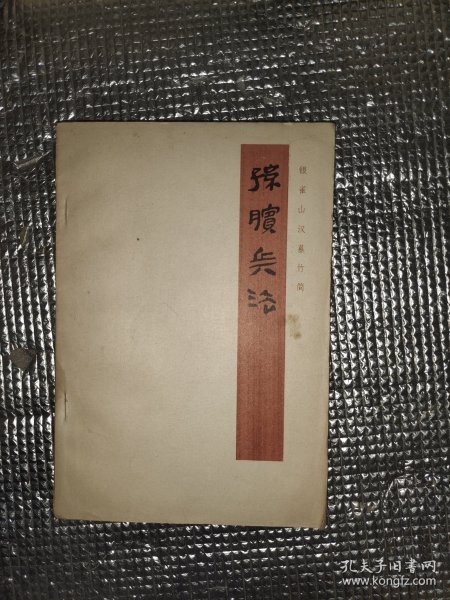 银雀山汉墓竹简
孫臏兵法
孔夫子旧书网
www.kongfz.com